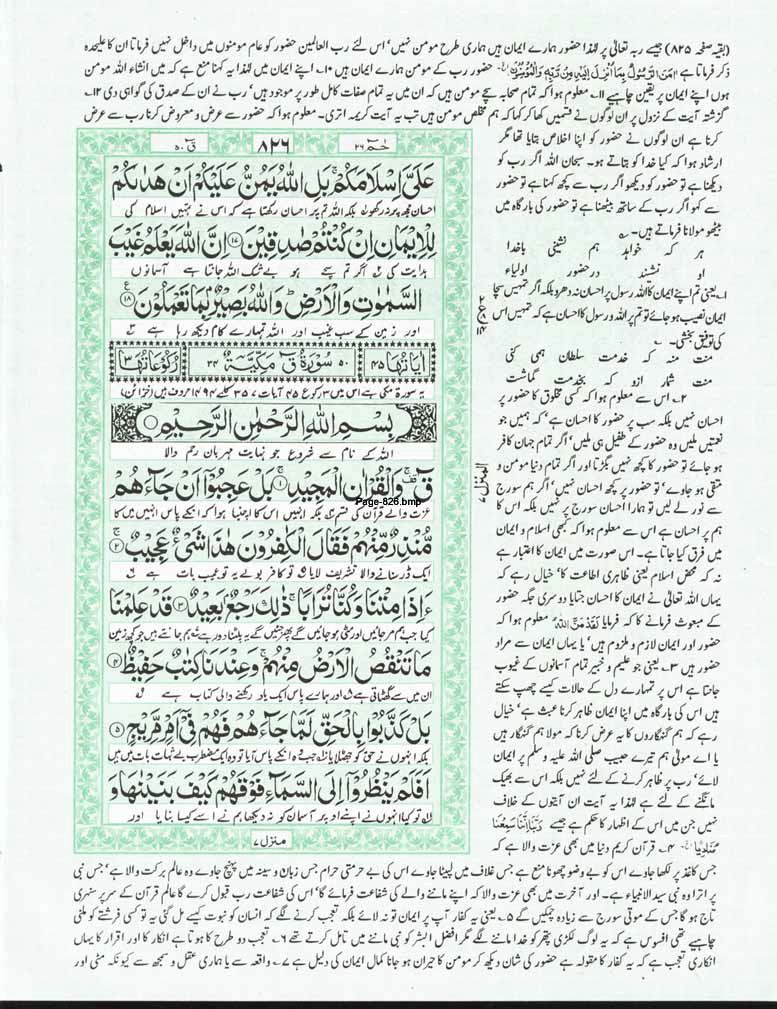 (بقیہ صفحہ ۸۲۵) جیسے ربہ تعالیٰ پر لہٰذا حضور ہمارے ایمان ہیں ہماری طرح مومن نہیں' اس لئے رب العالمین حضور کو عام مومنوں میں داخل نہیں فرماتا ان کا علیحدہ
ذکر فرماتا ہے اٰمَنَ الرَّسُوْلُ بِمَآ اُنْزِلَ اِلَیْهِ مِنْ رَّبِّهٖ وَالْمُؤْمِنُوْنَ۔ حضور رب کے مومن ہمارے ایمان ہیں ۱۰۔ اپنے ایمان میں لہٰذا یہ کہنا منع ہے کہ میں انشاء اللہ مومن
ہوں اپنے ایمان پر یقین چاہیے ۱۱۔ معلوم ہوا کہ تمام صحابہ سچے مومن ہیں کہ ان میں یہ تمام صفات کامل طور پر موجود ہیں' رب نے ان کے صدق کی گواہی دی ۱۲۔
گزشتہ آیت کے نزول پر ان لوگوں نے قسمیں کھا کر کہا کہ ہم مخلص مومن ہیں تب یہ آیت کریمہ اتری۔ معلوم ہوا کہ حضور سے عرض و معروض کرنا رب سے عرض
کرنا ہے ان لوگوں نے حضور کو اپنا اخلاص بتایا تھا مگر
ارشاد ہوا کہ کیا خدا کو بتاتے ہو۔ سبحان اللہ اگر رب کو
دیکھنا ہے تو حضور کو دیکھو اگر رب سے کچھ کہنا ہے تو حضور
سے کہو اگر رب کے ساتھ بیٹھنا ہے تو حضور کی بارگاہ میں
بیٹھو مولانا فرماتے ہیں۔
ہر کہ خواہد ہم نشینی باخدا
او نشند در حضور اولیاء
۱۔ یعنی تم اپنے ایمان کا اللہ رسول پر احسان نہ دھرو بلکہ اگر تمہیں سچا
ایمان نصیب ہو جائے تو تم پر اللہ و رسول کا احسان ہے کہ تمہیں اس
کی توفیق بخشی۔
منت منہ کہ خدمت سلطان ہمی کنی
منت شمار ازو کہ بخدمت گماشت
۲۔ اس سے معلوم ہوا کہ کسی مخلوق کا حضور پر
احسان نہیں بلکہ سب پر حضور کا احسان ہے' کہ ہمیں جو
نعتیں ملیں وہ حضور کے طفیل ہی ملیں' اگر تمام جہان کافر
ہو جائے تو حضور کا کچھ نہیں بگڑتا اور اگر تمام دنیا مومن و
متقی ہو جاوے' تو حضور پر کچھ احسان نہیں' اگر ہم سورج
سے نور لے لیں تو ہمارا احسان سورج پر نہیں بلکہ اس کا
ہم پر احسان ہے اس سے معلوم ہوا کہ کبھی اسلام و ایمان
میں فرق کیا جاتا ہے۔ اس صورت میں ایمان کا اعتبار ہے
نہ کہ محض اسلام یعنی ظاہری اطاعت کا' خیال رہے کہ
یہاں اللہ تعالیٰ نے ایمان کا احسان جتایا دوسری جگہ حضور
کے مبعوث فرمانے کا کہ فرمایا لَقَدْ مَنَّ اللّٰهُ معلوم ہوا کہ
حضور اور ایمان لازم و ملزوم ہیں' یا یہاں ایمان سے مراد
حضور ہیں ۳۔ یعنی جو علیم و خبیر تمام آسمانوں کے غیوب
جانتا ہے اس پر تمہارے دل کے حالات کیسے چھپ سکتے
ہیں اس کی بارگاہ میں اپنا ایمان ظاہر کرنا عبث ہے' خیال
رہے کہ ہم گنہگاروں کا یہ عرض کرنا کہ مولا ہم گنہگار ہیں
یا اے مولیٰ ہم تیرے حبیب صلی اللہ علیہ وسلم پر ایمان
لائے' رب پر ظاہر کرنے کے لئے نہیں بلکہ اس سے بھیک
مانگنے کے لئے ہے لہٰذا یہ آیت ان آیتوں کے خلاف
نہیں جن میں اس کے اظہار کا حکم ہے جیسے رَبَّنَآ اِنَّنَا سَمِعْنَا
مُنَادِیًا ۔ ۴۔ قرآن کریم دنیا میں بھی عزت والا ہے کہ
حٰمٓ ۲۶
۸۲۶
قٓ ۵۰
عَلَیَّ اِسْلَامَكُمْ ۚ بَلِ اللّٰهُ یَمُنُّ عَلَیْكُمْ اَنْ هَدٰىكُمْ
احسان مجھ پر نہ رکھو بلکہ اللہ تم پر احسان رکھتا ہے کہ اس نے تمہیں اسلام کی
لِلْاِیْمَانِ اِنْ كُنْتُمْ صٰدِقِیْنَ ۱۷ اِنَّ اللّٰهَ یَعْلَمُ غَیْبَ
ہدایت کی اگر تم سچے ہو بے شک اللہ جانتا ہے آسمانوں
السَّمٰوٰتِ وَالْاَرْضِ ؕ وَاللّٰهُ بَصِیْرٌۢ بِمَا تَعْمَلُوْنَ ۱۸
اور زمین کے سب غیب اور اللہ تمہارے کام دیکھ رہا ہے
اٰیَاتُهَا ۴۵
۵۰ سُوْرَةُ قٓ مَكِّیَّةٌ ۳۴
رُكُوْعَاتُهَا ۳
یہ سورۃ مکی ہے اس میں ۳ رکوع ۴۵ آیات ۳۵۷ کلمے ۱۴۹۴ حروف ہیں (خزائن)
بِسْمِ اللّٰهِ الرَّحْمٰنِ الرَّحِیْمِ
اللہ کے نام سے شروع جو نہایت مہربان رحم والا
قٓ ۚ وَالْقُرْاٰنِ الْمَجِیْدِ ۱ بَلْ عَجِبُوْۤا اَنْ جَآءَهُمْ
Page-826.bmp
عزت والے قرآن کی قسم بلکہ انہیں اس کا اچنبا ہوا کہ انکے پاس انہیں میں کا
مُّنْذِرٌ مِّنْهُمْ فَقَالَ الْكٰفِرُوْنَ هٰذَا شَیْءٌ عَجِیْبٌ ۲
ایک ڈر سنانے والا تشریف لایا تو کافر بولے یہ تو عجیب بات ہے
ءَاِذَا مِتْنَا وَكُنَّا تُرَابًا ۚ ذٰلِكَ رَجْعٌۢ بَعِیْدٌ ۳ قَدْ عَلِمْنَا
کیا جب ہم مر جائیں اور مٹی ہو جائیں گے پھر جئیں گے یہ پلٹنا دور ہے ہم جانتے ہیں جو کچھ زمین
مَا تَنْقُصُ الْاَرْضُ مِنْهُمْ ۚ وَعِنْدَنَا كِتٰبٌ حَفِیْظٌ ۴
ان میں سے گھٹاتی ہے اور ہمارے پاس ایک یاد رکھنے والی کتاب ہے
بَلْ كَذَّبُوْا بِالْحَقِّ لَمَّا جَآءَهُمْ فَهُمْ فِیْۤ اَمْرٍ مَّرِیْجٍ ۵
بلکہ انہوں نے حق کو جھٹلایا جب وہ انکے پاس آیا تو وہ ایک مضطرب بے ثبات بات میں ہیں
اَفَلَمْ یَنْظُرُوْۤا اِلَى السَّمَآءِ فَوْقَهُمْ كَیْفَ بَنَیْنٰهَا وَ
تو کیا انہوں نے اپنے اوپر آسمان کو نہ دیکھا ہم نے اسے کیسا بنایا اور
منزل ۷
المنزل ۷
جس کاغذ پر لکھا جاوے اس کو بے وضو چھونا منع ہے جس غلاف میں لپیٹا جاوے اس کی بے حرمتی حرام جس زبان و سینہ میں پہنچ جاوے وہ عالم برکت والا ہے' جس نبی
پر اترا وہ نبی سید الانبیاء ہے۔ اور آخرت میں بھی عزت والا کہ اپنے ماننے والے کی شفاعت فرمائے گا' اس کی شفاعت رب قبول کرے گا عالم قرآن کے سر پر سنہری
تاج ہو گا جس کے موتی سورج سے زیادہ چمکیں گے ۵۔ یعنی یہ کفار آپ پر ایمان تو نہ لائے بلکہ تعجب کرنے لگے کہ انسان کو نبوت کیسے مل گئی یہ تو کسی فرشتے کو ملنی
چاہیے تھی افسوس ہے کہ یہ لوگ لکڑی پتھر کو خدا ماننے لگے مگر افضل البشر کو نبی ماننے میں تامل کرتے تھے ۶۔ تعجب دو طرح کا ہوتا ہے انکار کا اور اقرار کا یہاں
انکاری تعجب ہے کہ یہ کفار کا مقولہ ہے حضور کی شان دیکھ کر مومن کا حیران ہو جانا کمال ایمان کی دلیل ہے ۷۔ واقعہ سے یا ہماری عقل و سمجھ سے کیونکہ مٹی اور